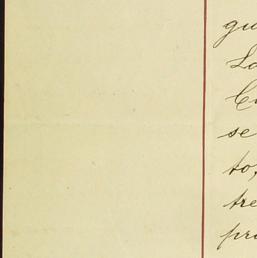 gu
La
Co
se
to,
tre
pro